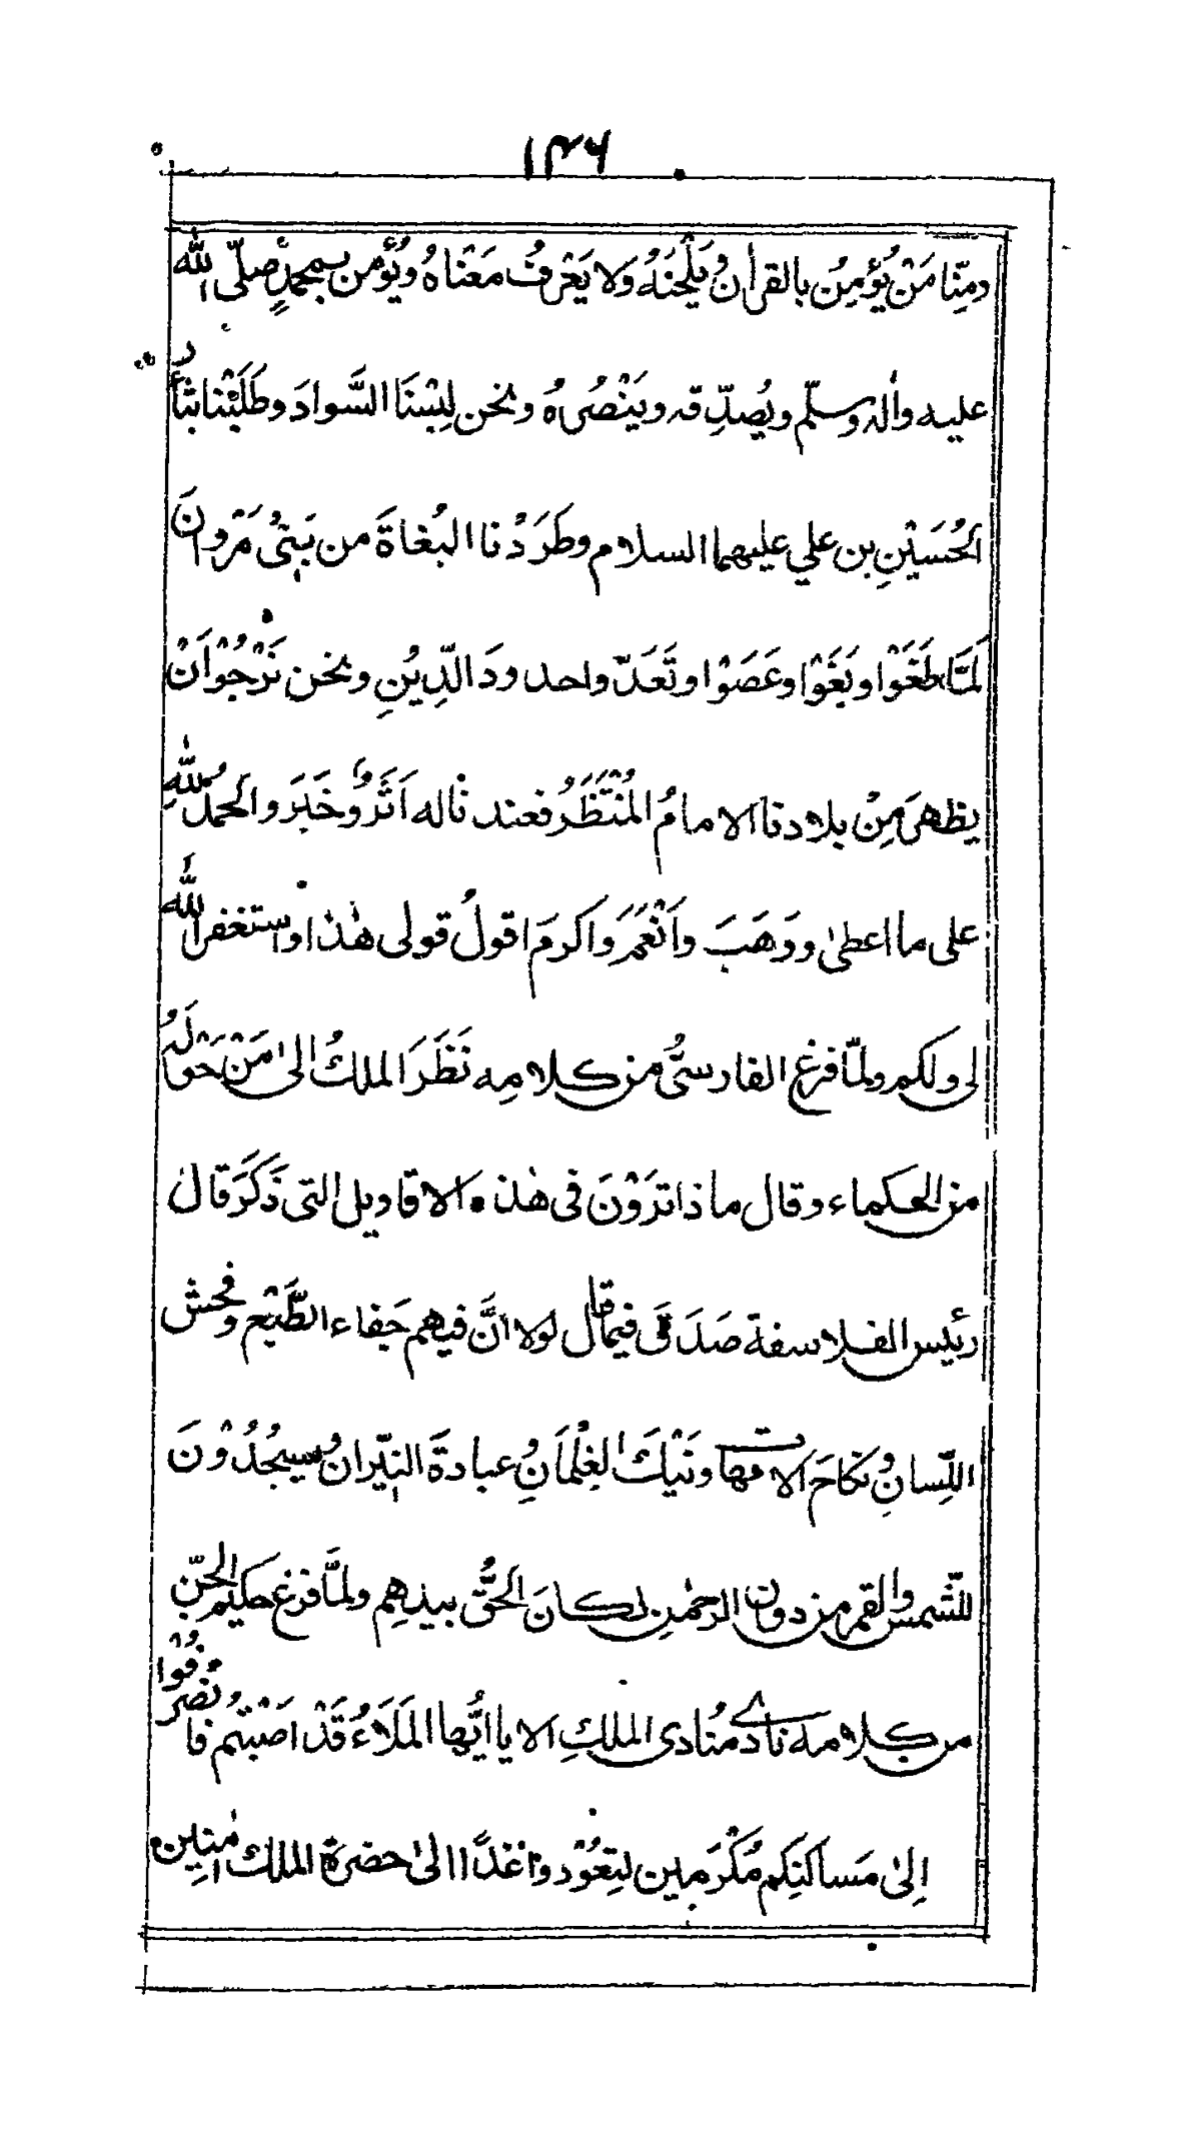 ۱۴۶
ومِنّا مَنْ يُؤمِنُ بالقرانِ ويُلَحِّنُهُ ولا يَعْرِفُ مَعْناهُ ويُؤمن بمحمدٍ صلّى الله
عليه واٰله وسلّم ويُصدِّقه ويَنْصُرُهُ ونحن لبِسْنَا السَّوادَ وطَلَبْنا بثأر
الحُسَيْنِ بن علي عليهما السلام وطَرَدْنا البُغاةَ من بَنِيْ مَرْوانَ
لمَّا طَغَوْا وبَغَوْا وعَصَوْا وتَعَدَّوا حدودَ الدِّيْنِ ونحن نَرْجُوْ اَنْ
يظهرَ مِنْ بلادنا الامامُ المُنْتَظَرُ فعندناله اَثَرٌ وخَبَرٌ والحمدُ للهِ
على ما اعطىٰ ووَهَبَ واَنْعَمَ واكرمَ اقولُ قولى هٰذا واستغفر اللهَ
لى ولكم ولمّا فرغ الفارسىُّ من كلامِه نَظَرَ الملكُ الىٰ مَنْ حَوْلَهُ
من الحكماء وقال ماذا تَرَوْنَ فى هٰذه الاقاويل التى ذَكَرَ قال
رئيس الفلاسفة صَدَقَ فيما قال لولا انَّ فيهم جَفاء الطَّبْع وفحش
اللِّسانِ ونكاحَ الامهات ونَيْكَ الغِلْمَانِ وعبادةَ النِّيْرانِ يسجُدُوْنَ
للشّمس والقمر من دون الرحمٰنِ لكانَ الحَقُّ بيدهِم ولمَّا فرغ حكيم الجنّ
من كلامه نادى مُنادى الملكِ الا يا ايُّها المَلَاءُ قَدْ اَمْسَيْتم فانْصَرِفُوْا
اِلىٰ مَساكنِكم مُكْرَمِين لتِعُوْدوا غدًا الىٰ حضرة الملك اٰمنِين